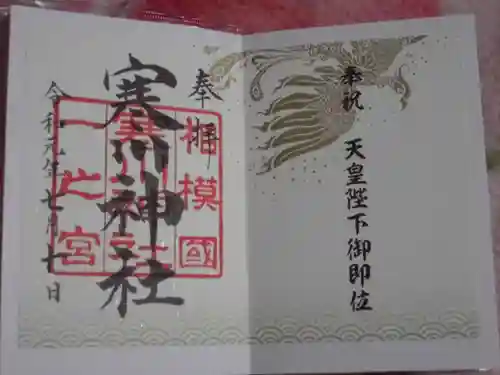 奉祝
天皇陛下御即位
奉拝
相模國
一之宮
寒川神社
令和元年七月十日